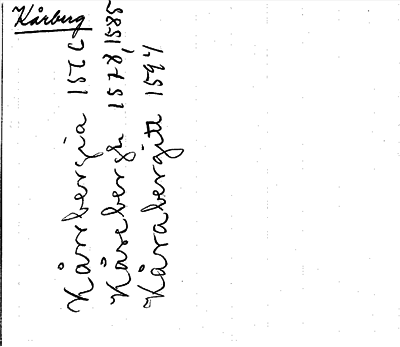 Kårberg
Kårrbergia 1566
Kårebergh 1578, 1585
Kårabergitt 1591